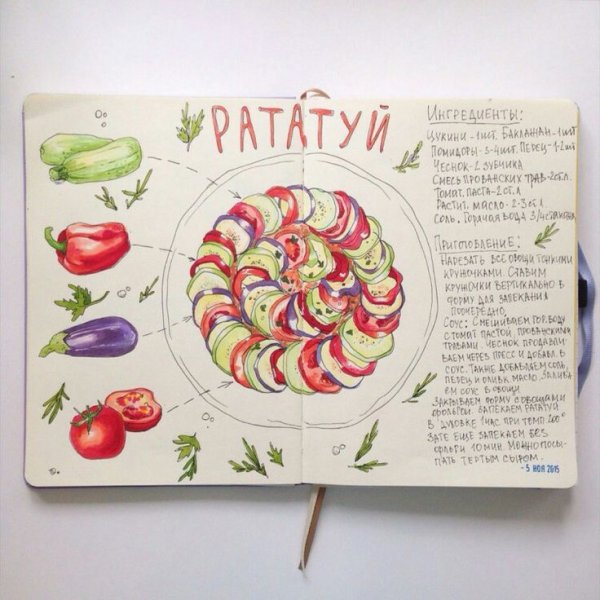 РАТАТУЙ
Ингредиенты:
Цукини - 1 шт. Баклажан - 1 шт
Помидоры - 3-4 шт. Перец - 1-2 шт
Чеснок - 2 зубчика
Смесь прованских трав - 2 ст.л.
Томат. паста - 2 ст.л
Растит. масло - 2-3 ст.л.
Соль. Горячая вода 3/4 стакана
Приготовление:
Нарезать все овощи тонкими
кружочками. Ставим
кружочки вертикально в
форму для запекания
поочередно.
Соус: Смешиваем гор. воду
с томат пастой, прованскими
травами. Чеснок продавли-
ваем через пресс и добавл. в
соус. Также добавляем соль,
перец и оливк. масло. Залива-
ем соус в овощи
Закрываем форму с овощами
фольгой. Запекаем рататуй
в духовке 1 час при темп 200°
Зате еще запекаем без
фольги 10 мин. Можно посы-
пать тертым сыром.
- 5 НОЯ 2015